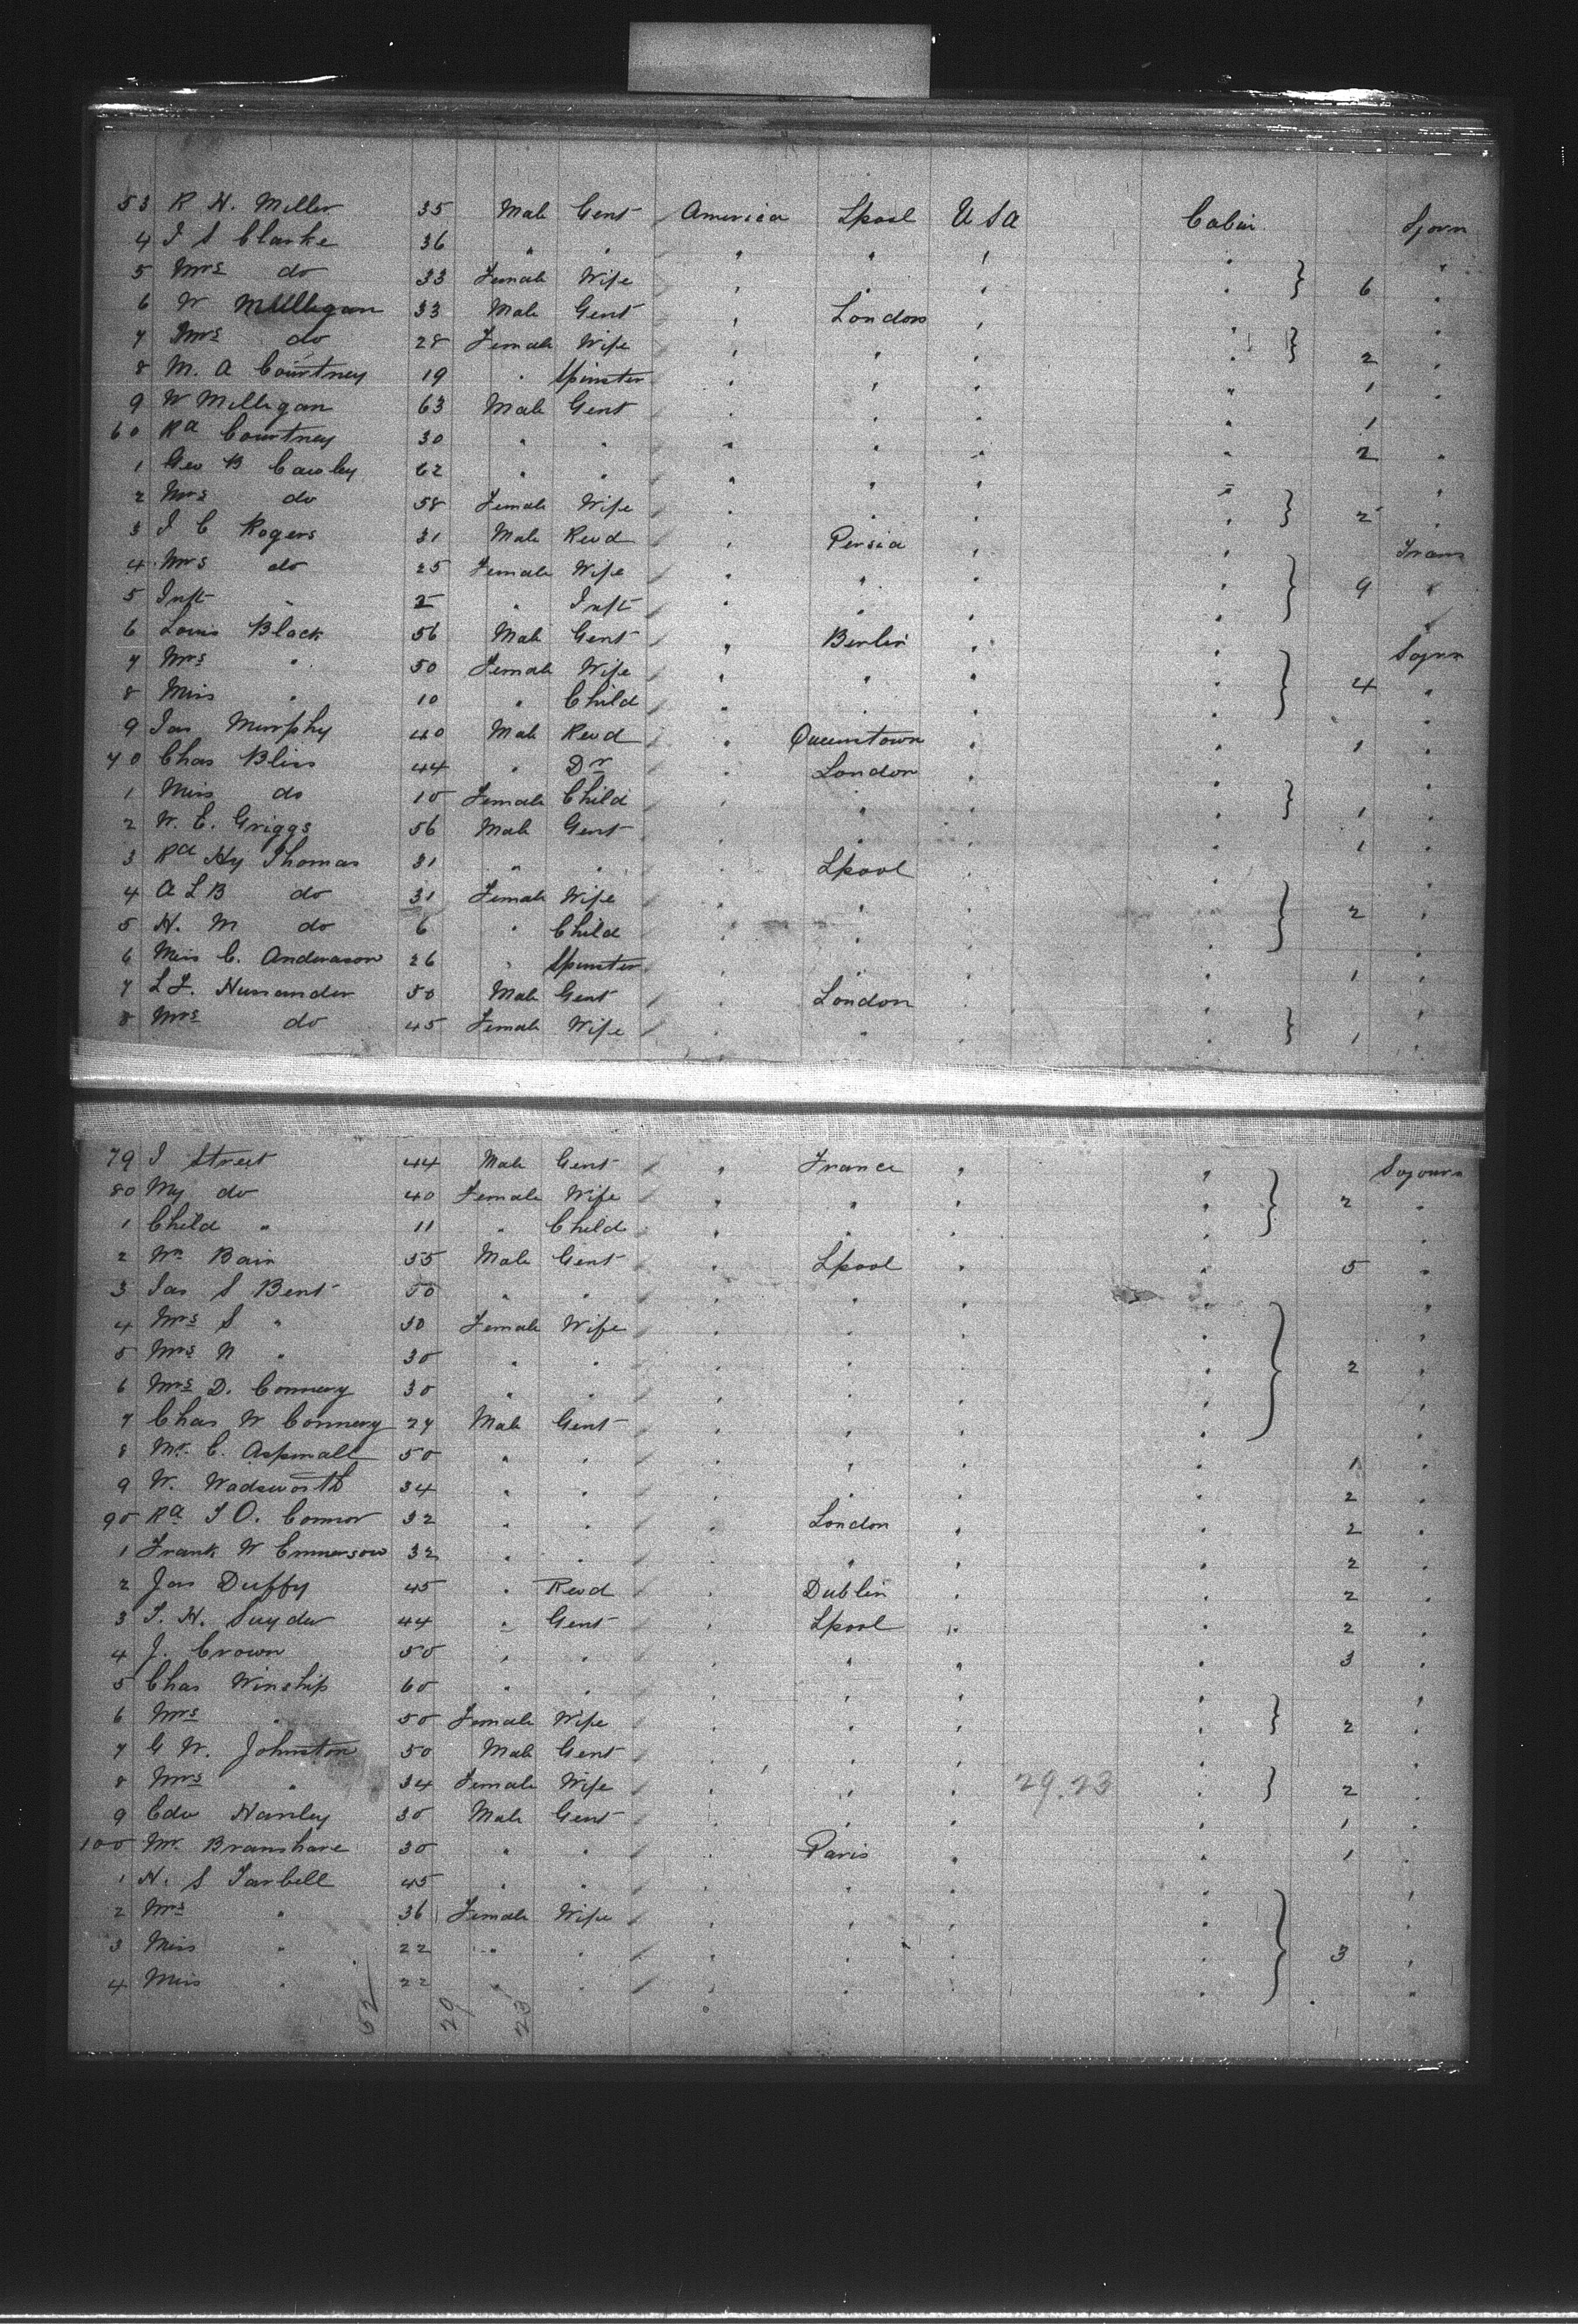 53 R H. Miller 35 Male Gent America Lpool U S A Cabin Sjorn
4 J S Clarke 36 " " " " " "
5 Mrs do 33 Female Wife " " " " 6 "
6 W Milligan 33 Male Gent " London " "
7 Mrs do 28 Female Wife " " " " 2 "
8 M. A Courtney 19 " Spinster " " " " 1 "
9 W Milligan 63 Male Gent " " " " 1
60 Rd Courtney 30 " " " " " " 2 "
1 Geo B Cawley 62 " " " " " " "
2 Mrs do 58 Female Wife " " " " 2 "
3 J C Rogers 31 Male Revd " Persia " " Trans
4 Mrs do 25 Female Wife " " " " 9 "
5 Inft " 2 " Inft " " " " "
6 Louis Black 56 Male Gent " Berlin " " Sojrn
7 Mrs " 50 Female Wife " " " " 4 "
8 Miss " 10 " Child " " " " "
9 Jas Murphy 40 Male Revd " Queenstown " " 1 "
70 Chas Bliss 44 " Dr " London " "
1 Miss do 10 Female Child " " " " 1 "
2 W. E. Griggs 56 Male Gent " " " " 1 "
3 Rd Hy Thomas 31 " " " Lpool " " "
4 A L B do 31 Female Wife " " " " 2 "
5 H. M do 6 " Child " " " " "
6 Miss C. Anderason 26 " Spinster " " " " 1 "
7 L F. 50 Male Gent " London " " "
8 Mrs do 45 Female Wife " " " " 1 "
79 J Street 44 Male Gent " France " " Sojourn
80 My do 40 Female Wife " " " " 2 "
1 Child " 11 " Child " " " " "
2 Wm Bain 55 Male Gent " Lpool " " 5 "
3 Jas S Bent 50 " " " " " " "
4 Mrs S " 30 Female Wife " " " " "
5 Mrs N " 30 " " " " " " 2 "
6 Mrs D. Connery 30 " " " " " " "
7 Chas W Connery 27 Male Gent " " " " "
8 Mr. C. Aspinall 50 " " " " " " 1 "
9 W. Wadsworth 34 " " " " " " 2 "
90 Rd J O. Connor 32 " " " London " " 2 "
1 Frank W Emmerson 32 " " " " " " 2 "
2 Jas Duffy 45 " Revd " Dublin " " 2 "
3 S. H. Snyder 44 " Gent " Lpool " " 2 "
4 J. Crown 50 " " " " " " 3 "
5 Chas Winship 60 " " " " " " "
6 Mrs " 50 Female Wife " " " " 2 "
7 G W. Johnston 50 Male Gent " " " " "
8 Mrs " 34 Female Wife " " " 29.23 " 2 "
9 Edw Hanley 30 Male Gent " " " " 1 "
100 Mr. Branshave 30 " " " Paris " " 1 "
1 H. S Tarbell 45 " " " " " " "
2 Mrs " 36 Female Wife " " " " "
3 Miss " 22 " " " " " " 3 "
4 Miss " 22 " " " " " " "
52 29 23